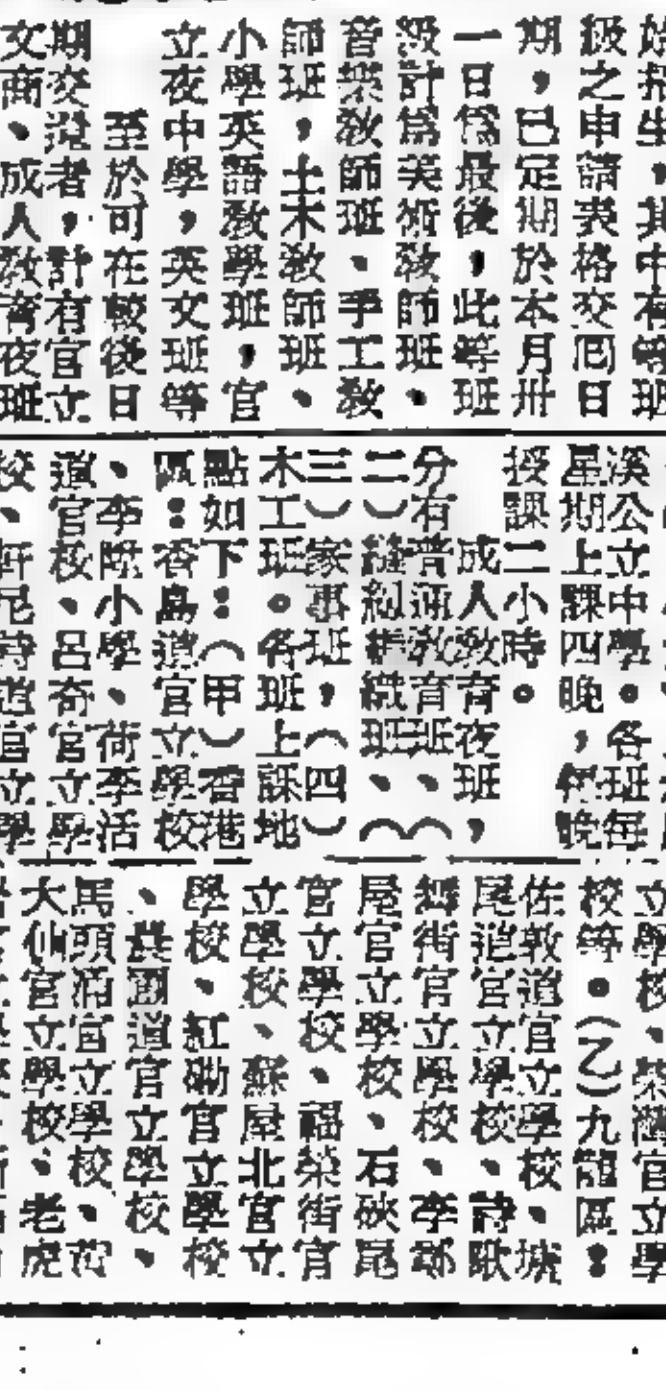 始招生，其中有等班
級之申請表格交囘日
期，已定期於本月卅
一日爲最後，此等班
級計爲美術敎師班、
音樂敎師班、手工敎
師班，土木敎師班、
小學英語敎學班，官
立夜中學，英文班等
至於可在較後日
期交遞者，計有官立
文商、成人敎育夜班
溪公立中學。各班每
星期上課四晚，每晚
授課二小時。
成人敎育夜班，
分有普通敎育班、（
二）縫紉織班、（
三）家事班，（四）
木工班。各班上課地
點如下：（甲）香港
區：香島道官立學校
、李陞小學、荷李活
道官校、呂奇官立學
校、軒尼詩道官立學
立學校、官立學
校等。（乙）九龍區：
佐敦道官立學校、塘
尾道官立學校、詩歌
舞街官立學校、李鄭
屋官立學校、石硤尾
官立學校、福榮街官
立學校、蘇屋北官立
學校、紅磡官立學校
、農圃道官立學校、
馬頭涌官立學校、黃
大仙官立學校、老虎